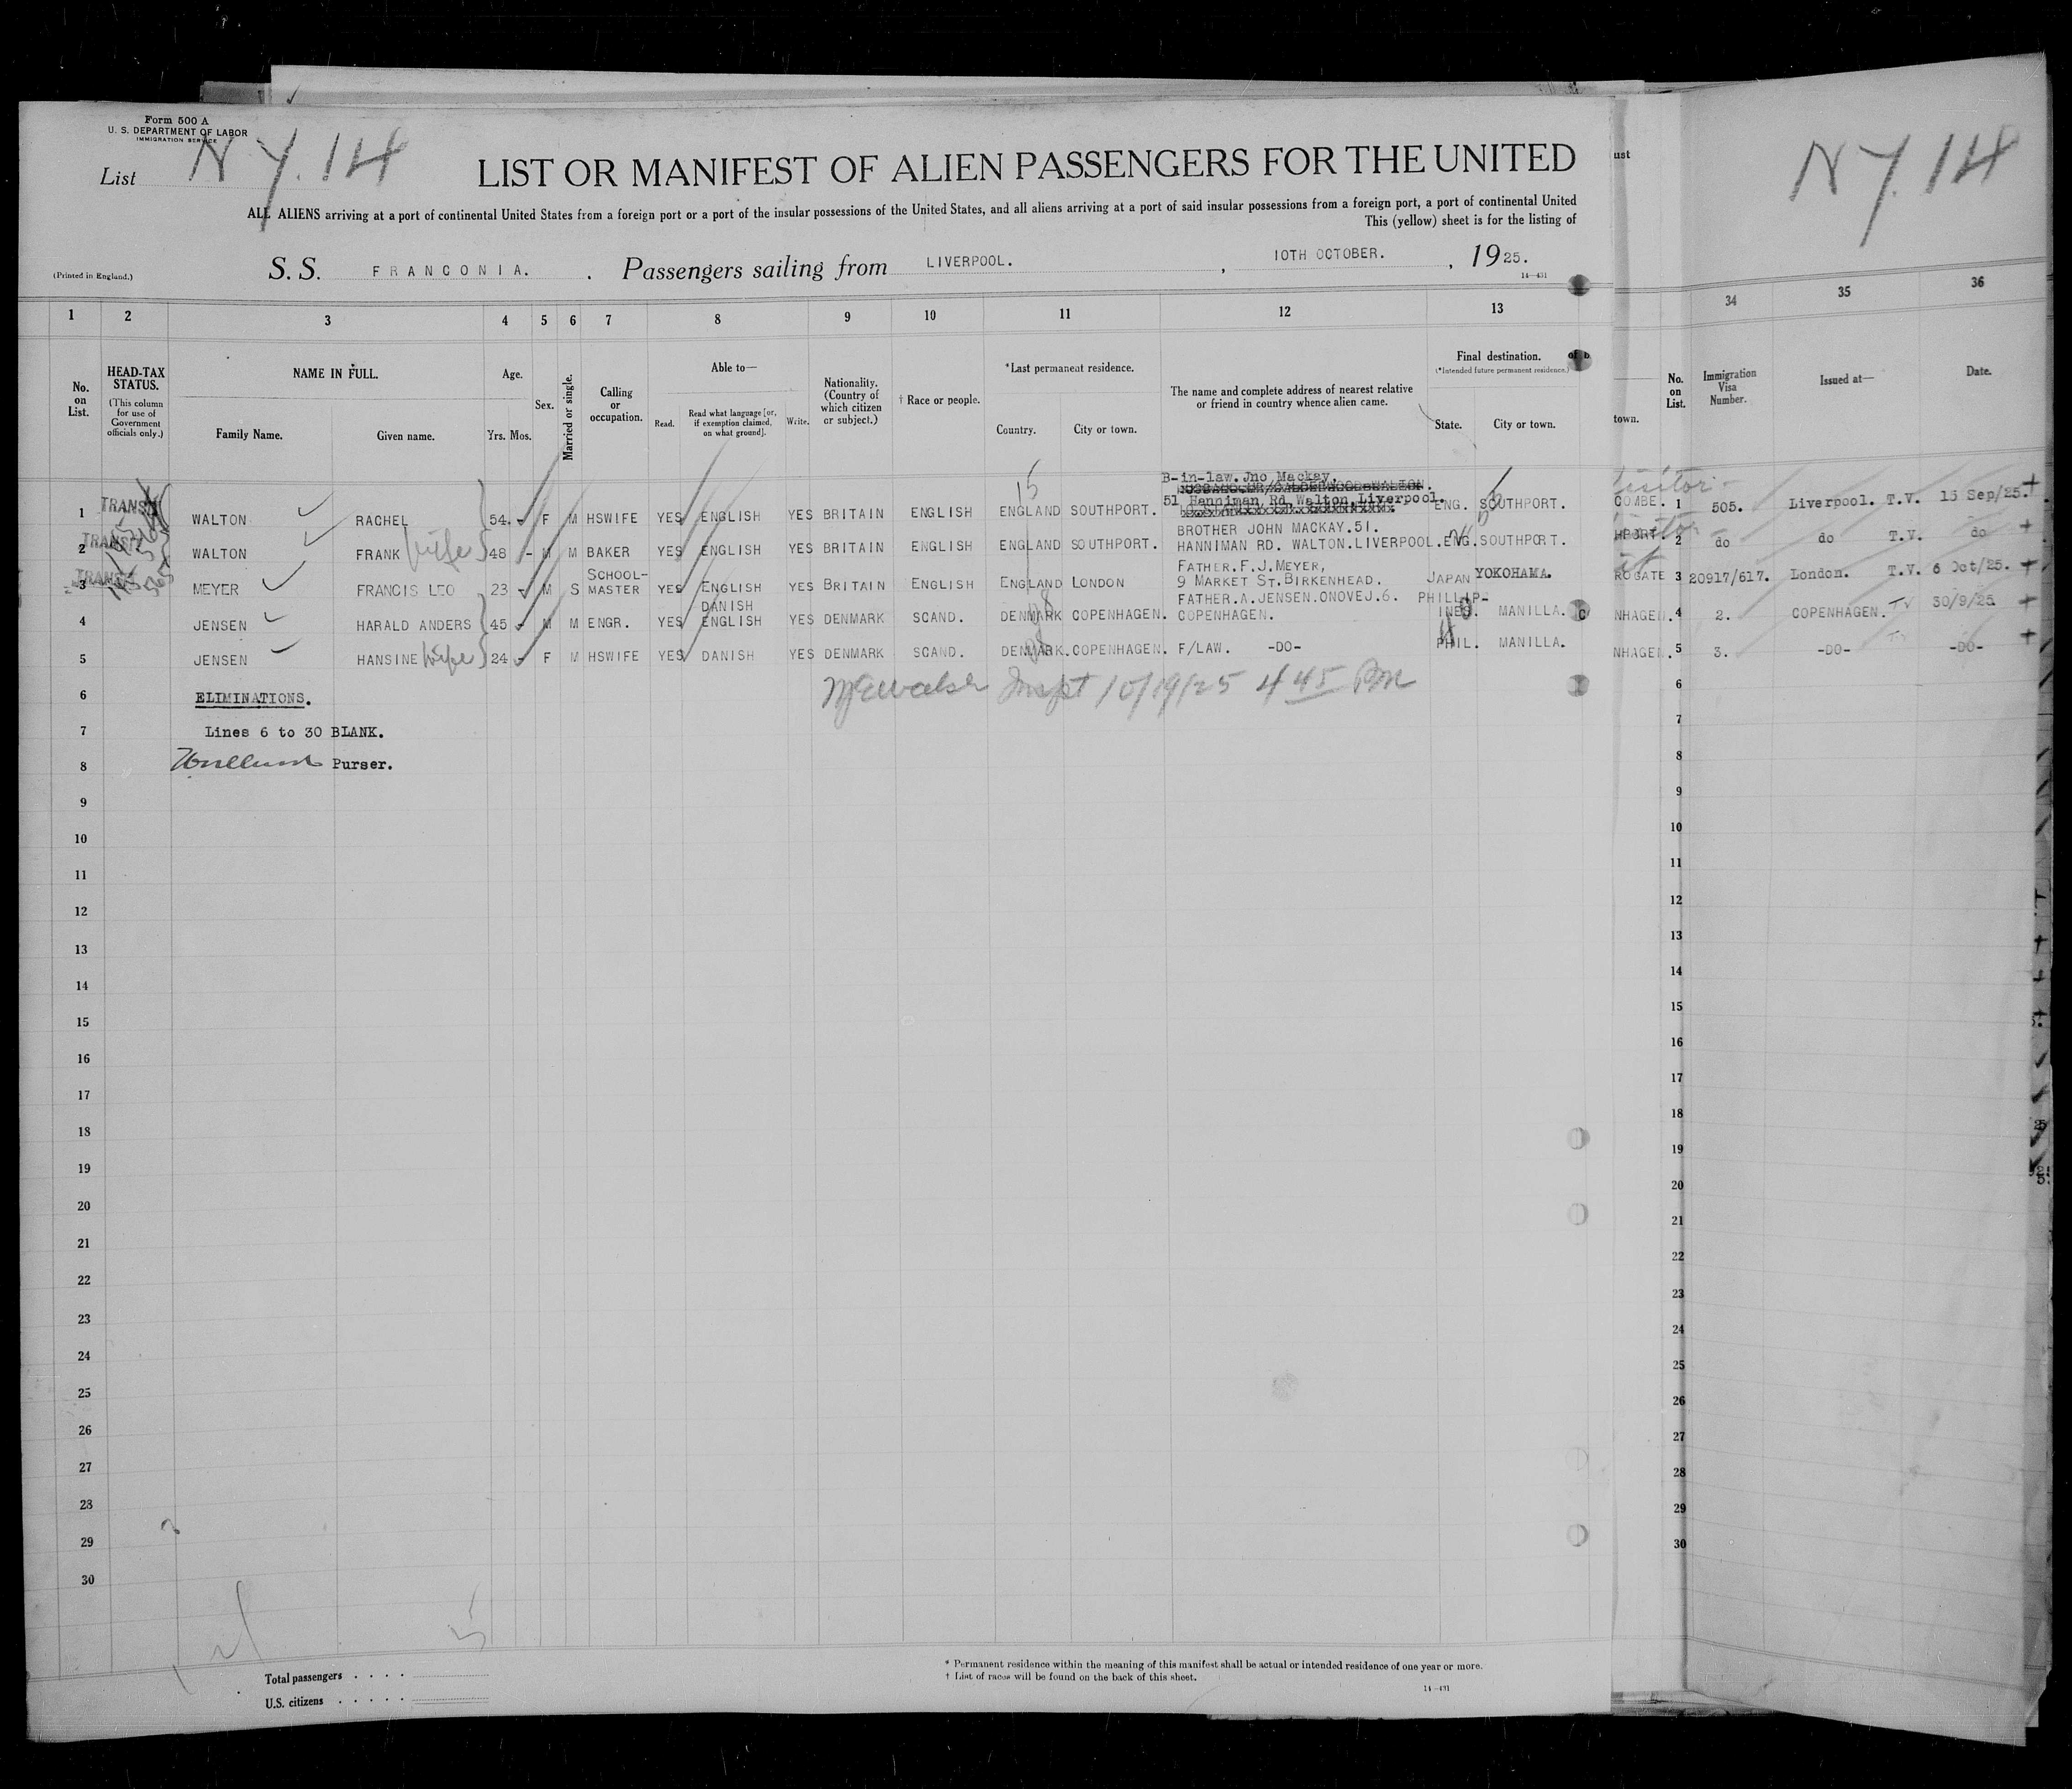 Form 500 A
U. S. DEPARTMENT OF LABOR
IMMIGRATION SERVICE
List N Y. 14
LIST OR MANIFEST OF ALIEN PASSENGERS FOR THE UNITED
ALL ALIENS arriving at a port of continental United States from a foreign port or a port of the insular possessions of the United States, and all aliens arriving at a port of said insular possessions from a foreign port, a port of continental United
This (yellow) sheet is for the listing of
(Printed in England.)
S. S. FRANCONIA. Passengers sailing from LIVERPOOL. , 10TH OCTOBER. , 1925.
14—431
1 2 3 4 5 6 7 8 9 10 11 12 13
No. on List.
HEAD-TAX STATUS.
(This column for use of Government officials only.)
NAME IN FULL.
Family Name. Given name.
Age.
Yrs. Mos.
Sex.
Married or single.
Calling or occupation.
Able to—
Read. Read what language [or, if exemption claimed, on what ground]. Write.
Nationality. (Country of which citizen or subject.)
† Race or people.
*Last permanent residence.
Country. City or town.
The name and complete address of nearest relative or friend in country whence alien came.
Final destination.
(*Intended future permanent residence.)
State. City or town.
B-in-law. Jno Mackay.
51 Hanniman Rd Walton Liverpool.
1 TRANSIT WALTON RACHEL 54. - F M HSWIFE YES ENGLISH YES BRITAIN ENGLISH ENGLAND SOUTHPORT. ENG. SOUTHPORT.
2 TRANSIT WALTON FRANK wife 48 - M M BAKER YES ENGLISH YES BRITAIN ENGLISH ENGLAND SOUTHPORT. BROTHER JOHN MACKAY.51.
HANNIMAN RD. WALTON.LIVERPOOL. ENG. SOUTHPORT.
3 TRANSIT MEYER FRANCIS LEO 23 - M S SCHOOL-
MASTER YES ENGLISH YES BRITAIN ENGLISH ENGLAND LONDON FATHER.F.J.MEYER,
9 MARKET ST.BIRKENHEAD. JAPAN YOKOHAMA.
4 JENSEN HARALD ANDERS 45 - M M ENGR. YES DANISH
ENGLISH YES DENMARK SCAND. DENMARK COPENHAGEN. FATHER.A.JENSEN.ONOVEJ.6.
COPENHAGEN. PHILLIP-
INES. MANILLA.
5 JENSEN HANSINE wife 24 - F M HSWIFE YES DANISH YES DENMARK SCAND. DENMARK. COPENHAGEN. F/LAW. -DO- PHIL. MANILLA.
6 ELIMINATIONS.
Inspt 10/19/25 4 45 PM
7 Lines 6 to 30 BLANK.
8 Purser.
9
10
11
12
13
14
15
16
17
18
19
20
21
22
23
24
25
26
27
28
29
30
Total passengers . . . .
U.S. citizens . . . . .
* Permanent residence within the meaning of this manifest shall be actual or intended residence of one year or more.
† List of races will be found on the back of this sheet.
14—431
N Y. 14
34 35 36
town.
No. on List.
Immigration Visa Number.
Issued at—
Date.
COMBE. 1 505. Liverpool. T.V. 15 Sep/25.
HPORT. 2 do do T.V. do
ROGATE 3 20917/617. London. T.V. 6 Oct/25.
NHAGEN. 4 2. COPENHAGEN. TV 30/9/25
NHAGEN. 5 3. -DO- TV -DO-
6
7
8
9
10
11
12
13
14
15
16
17
18
19
20
21
22
23
24
25
26
27
28
29
30